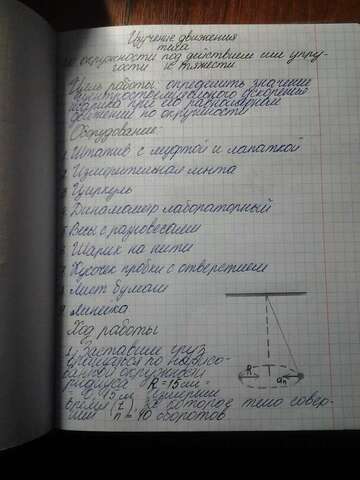 Изучение движения
тела
по окружности под действием сил упру-
гости и тяжести
Цель работы: определить значение
центростремительного ускорения
шарика при его равномерном
движении по окружности
Оборудование:
Штатив с муфтой и лапаткой
2 Измерительная лента
3 Циркуль
4 Динамометр лабораторный
5 Весы с разновесами
6 Шарик на нити
7 Кусочек пробки с отверстием
8 Лист бумаги
9 Линейка
Ход работы
1. Заставшие груз
вращаться по
окружности
радиуса R=15см=
0,15м Измерили
время (t), за которое тело совер-
шит n=40 оборотов.
R
an